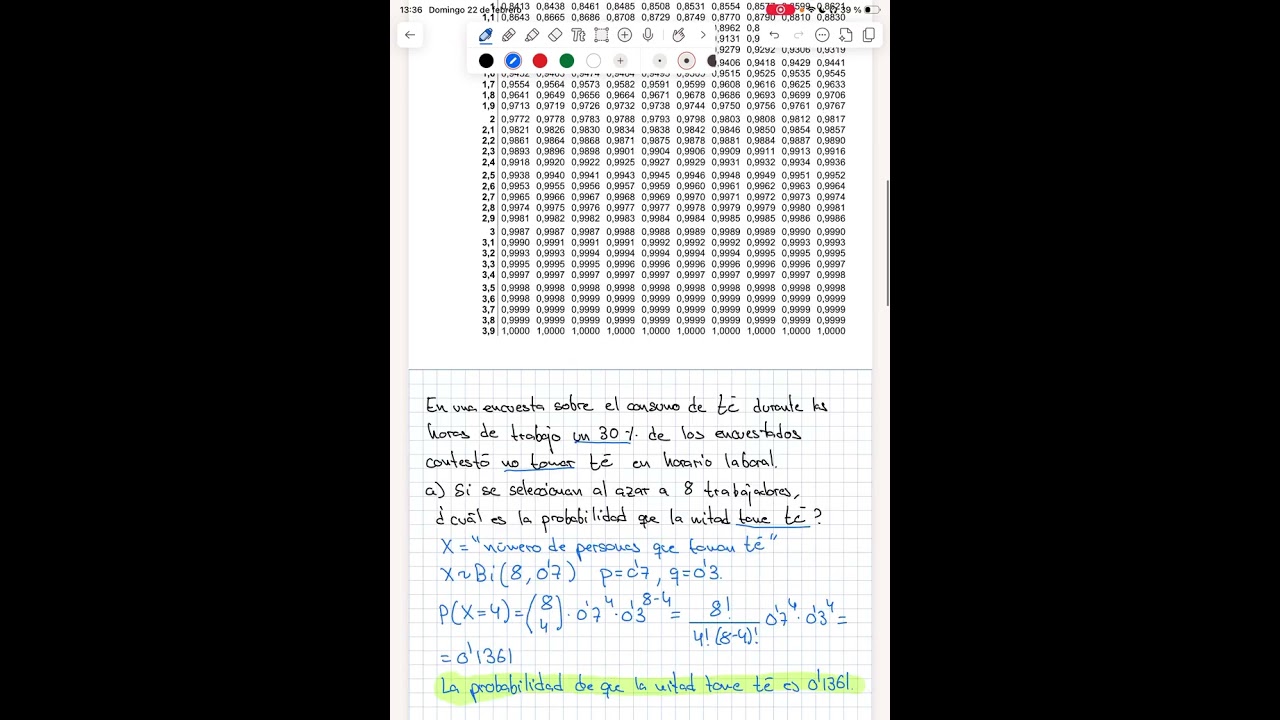 13:36 Domingo 22 de febrero 39 %
0,8413 0,8438 0,8461 0,8485 0,8508 0,8531 0,8554 0,8577 0,8599 0,8621
1,1 0,8643 0,8665 0,8686 0,8708 0,8729 0,8749 0,8770 0,8790 0,8810 0,8830
0,8962 0,8
0,9131 0,9
0,9279 0,9292 0,9306 0,9319
0,9406 0,9418 0,9429 0,9441
0,9515 0,9525 0,9535 0,9545
1,7 0,9554 0,9564 0,9573 0,9582 0,9591 0,9599 0,9608 0,9616 0,9625 0,9633
1,8 0,9641 0,9649 0,9656 0,9664 0,9671 0,9678 0,9686 0,9693 0,9699 0,9706
1,9 0,9713 0,9719 0,9726 0,9732 0,9738 0,9744 0,9750 0,9756 0,9761 0,9767
2 0,9772 0,9778 0,9783 0,9788 0,9793 0,9798 0,9803 0,9808 0,9812 0,9817
2,1 0,9821 0,9826 0,9830 0,9834 0,9838 0,9842 0,9846 0,9850 0,9854 0,9857
2,2 0,9861 0,9864 0,9868 0,9871 0,9875 0,9878 0,9881 0,9884 0,9887 0,9890
2,3 0,9893 0,9896 0,9898 0,9901 0,9904 0,9906 0,9909 0,9911 0,9913 0,9916
2,4 0,9918 0,9920 0,9922 0,9925 0,9927 0,9929 0,9931 0,9932 0,9934 0,9936
2,5 0,9938 0,9940 0,9941 0,9943 0,9945 0,9946 0,9948 0,9949 0,9951 0,9952
2,6 0,9953 0,9955 0,9956 0,9957 0,9959 0,9960 0,9961 0,9962 0,9963 0,9964
2,7 0,9965 0,9966 0,9967 0,9968 0,9969 0,9970 0,9971 0,9972 0,9973 0,9974
2,8 0,9974 0,9975 0,9976 0,9977 0,9977 0,9978 0,9979 0,9979 0,9980 0,9981
2,9 0,9981 0,9982 0,9982 0,9983 0,9984 0,9984 0,9985 0,9985 0,9986 0,9986
3 0,9987 0,9987 0,9987 0,9988 0,9988 0,9989 0,9989 0,9989 0,9990 0,9990
3,1 0,9990 0,9991 0,9991 0,9991 0,9992 0,9992 0,9992 0,9992 0,9993 0,9993
3,2 0,9993 0,9993 0,9994 0,9994 0,9994 0,9994 0,9994 0,9995 0,9995 0,9995
3,3 0,9995 0,9995 0,9995 0,9996 0,9996 0,9996 0,9996 0,9996 0,9996 0,9997
3,4 0,9997 0,9997 0,9997 0,9997 0,9997 0,9997 0,9997 0,9997 0,9997 0,9998
3,5 0,9998 0,9998 0,9998 0,9998 0,9998 0,9998 0,9998 0,9998 0,9998 0,9998
3,6 0,9998 0,9998 0,9999 0,9999 0,9999 0,9999 0,9999 0,9999 0,9999 0,9999
3,7 0,9999 0,9999 0,9999 0,9999 0,9999 0,9999 0,9999 0,9999 0,9999 0,9999
3,8 0,9999 0,9999 0,9999 0,9999 0,9999 0,9999 0,9999 0,9999 0,9999 0,9999
3,9 1,0000 1,0000 1,0000 1,0000 1,0000 1,0000 1,0000 1,0000 1,0000 1,0000
En una encuesta sobre el consumo de té durante las
horas de trabajo un 30 % de los encuestados
contestó no tomar té en horario laboral.
a) Si se seleccionan al azar a 8 trabajadores,
¿cuál es la probabilidad que la mitad tome té?
X = "número de personas que toman té"
X ~ Bi(8, 0'7) p=0'7, q=0'3.
P(X=4) = (8 4) · 0'7^4 · 0'3^8-4 = 8! / 4! (8-4)! 0'7^4 · 0'3^4 =
= 0'1361
La probabilidad de que la mitad tome té es 0'1361.